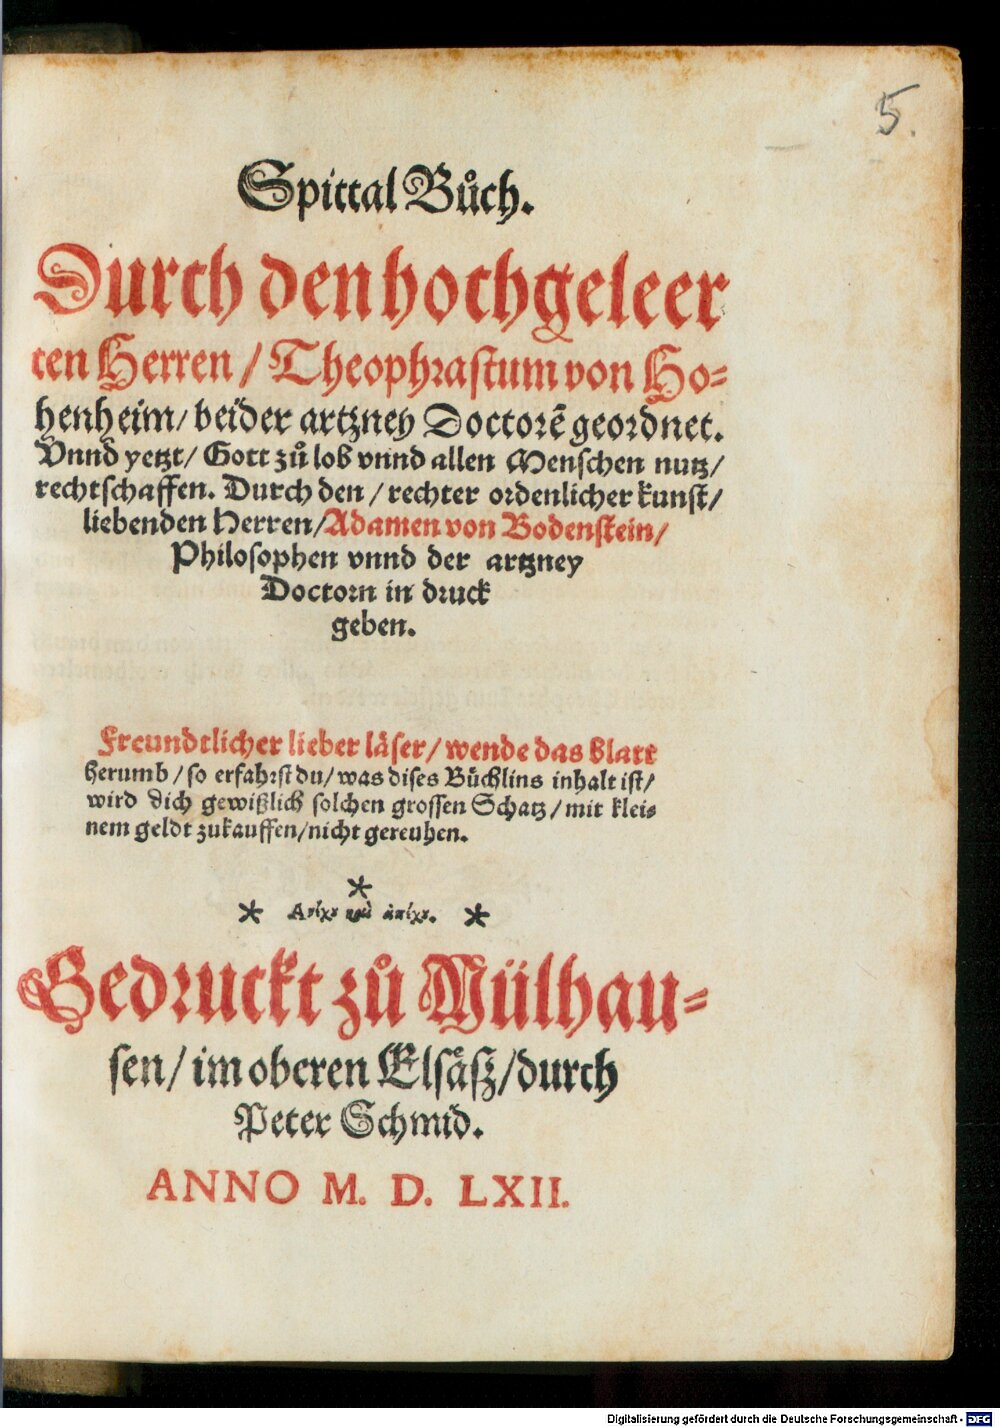 5.
Spittal Bůch.
Durch den hochgeleer
ten Herren / Theophrastum von Ho-
henheim / beider artzney Doctorē geordnet.
Vnnd yetzt / Gott zů lob vnnd allen Menschen nutz /
rechtschaffen. Durch den / rechter ordenlicher kunst /
liebenden Herren / Adamen von Bodenstein /
Philosophen vnnd der artzney
Doctorn in druck
geben.
Freundtlicher lieber läser / wende das blatt
herumb / so erfahrst du / was dises Bůchlins inhalt ist /
wird dich gewißlich solchen grossen Schatz / mit klei-
nem geldt zukauffen / nicht gereuhen.
*
* Ἀνέχου καὶ ἀπέχου. *
Gedruckt zů Mülhau-
sen / im oberen Elsåsz / durch
Peter Schmid.
ANNO M. D. LXII.
Digitalisierung gefördert durch die Deutsche Forschungsgemeinschaft - DFG